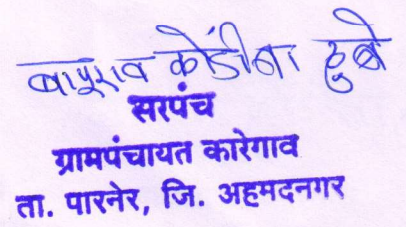 बापुराव कोंडीबा ठुबे
सरपंच
ग्रामपंचायत कारेगाव
ता. पारनेर, जि. अहमदनगर